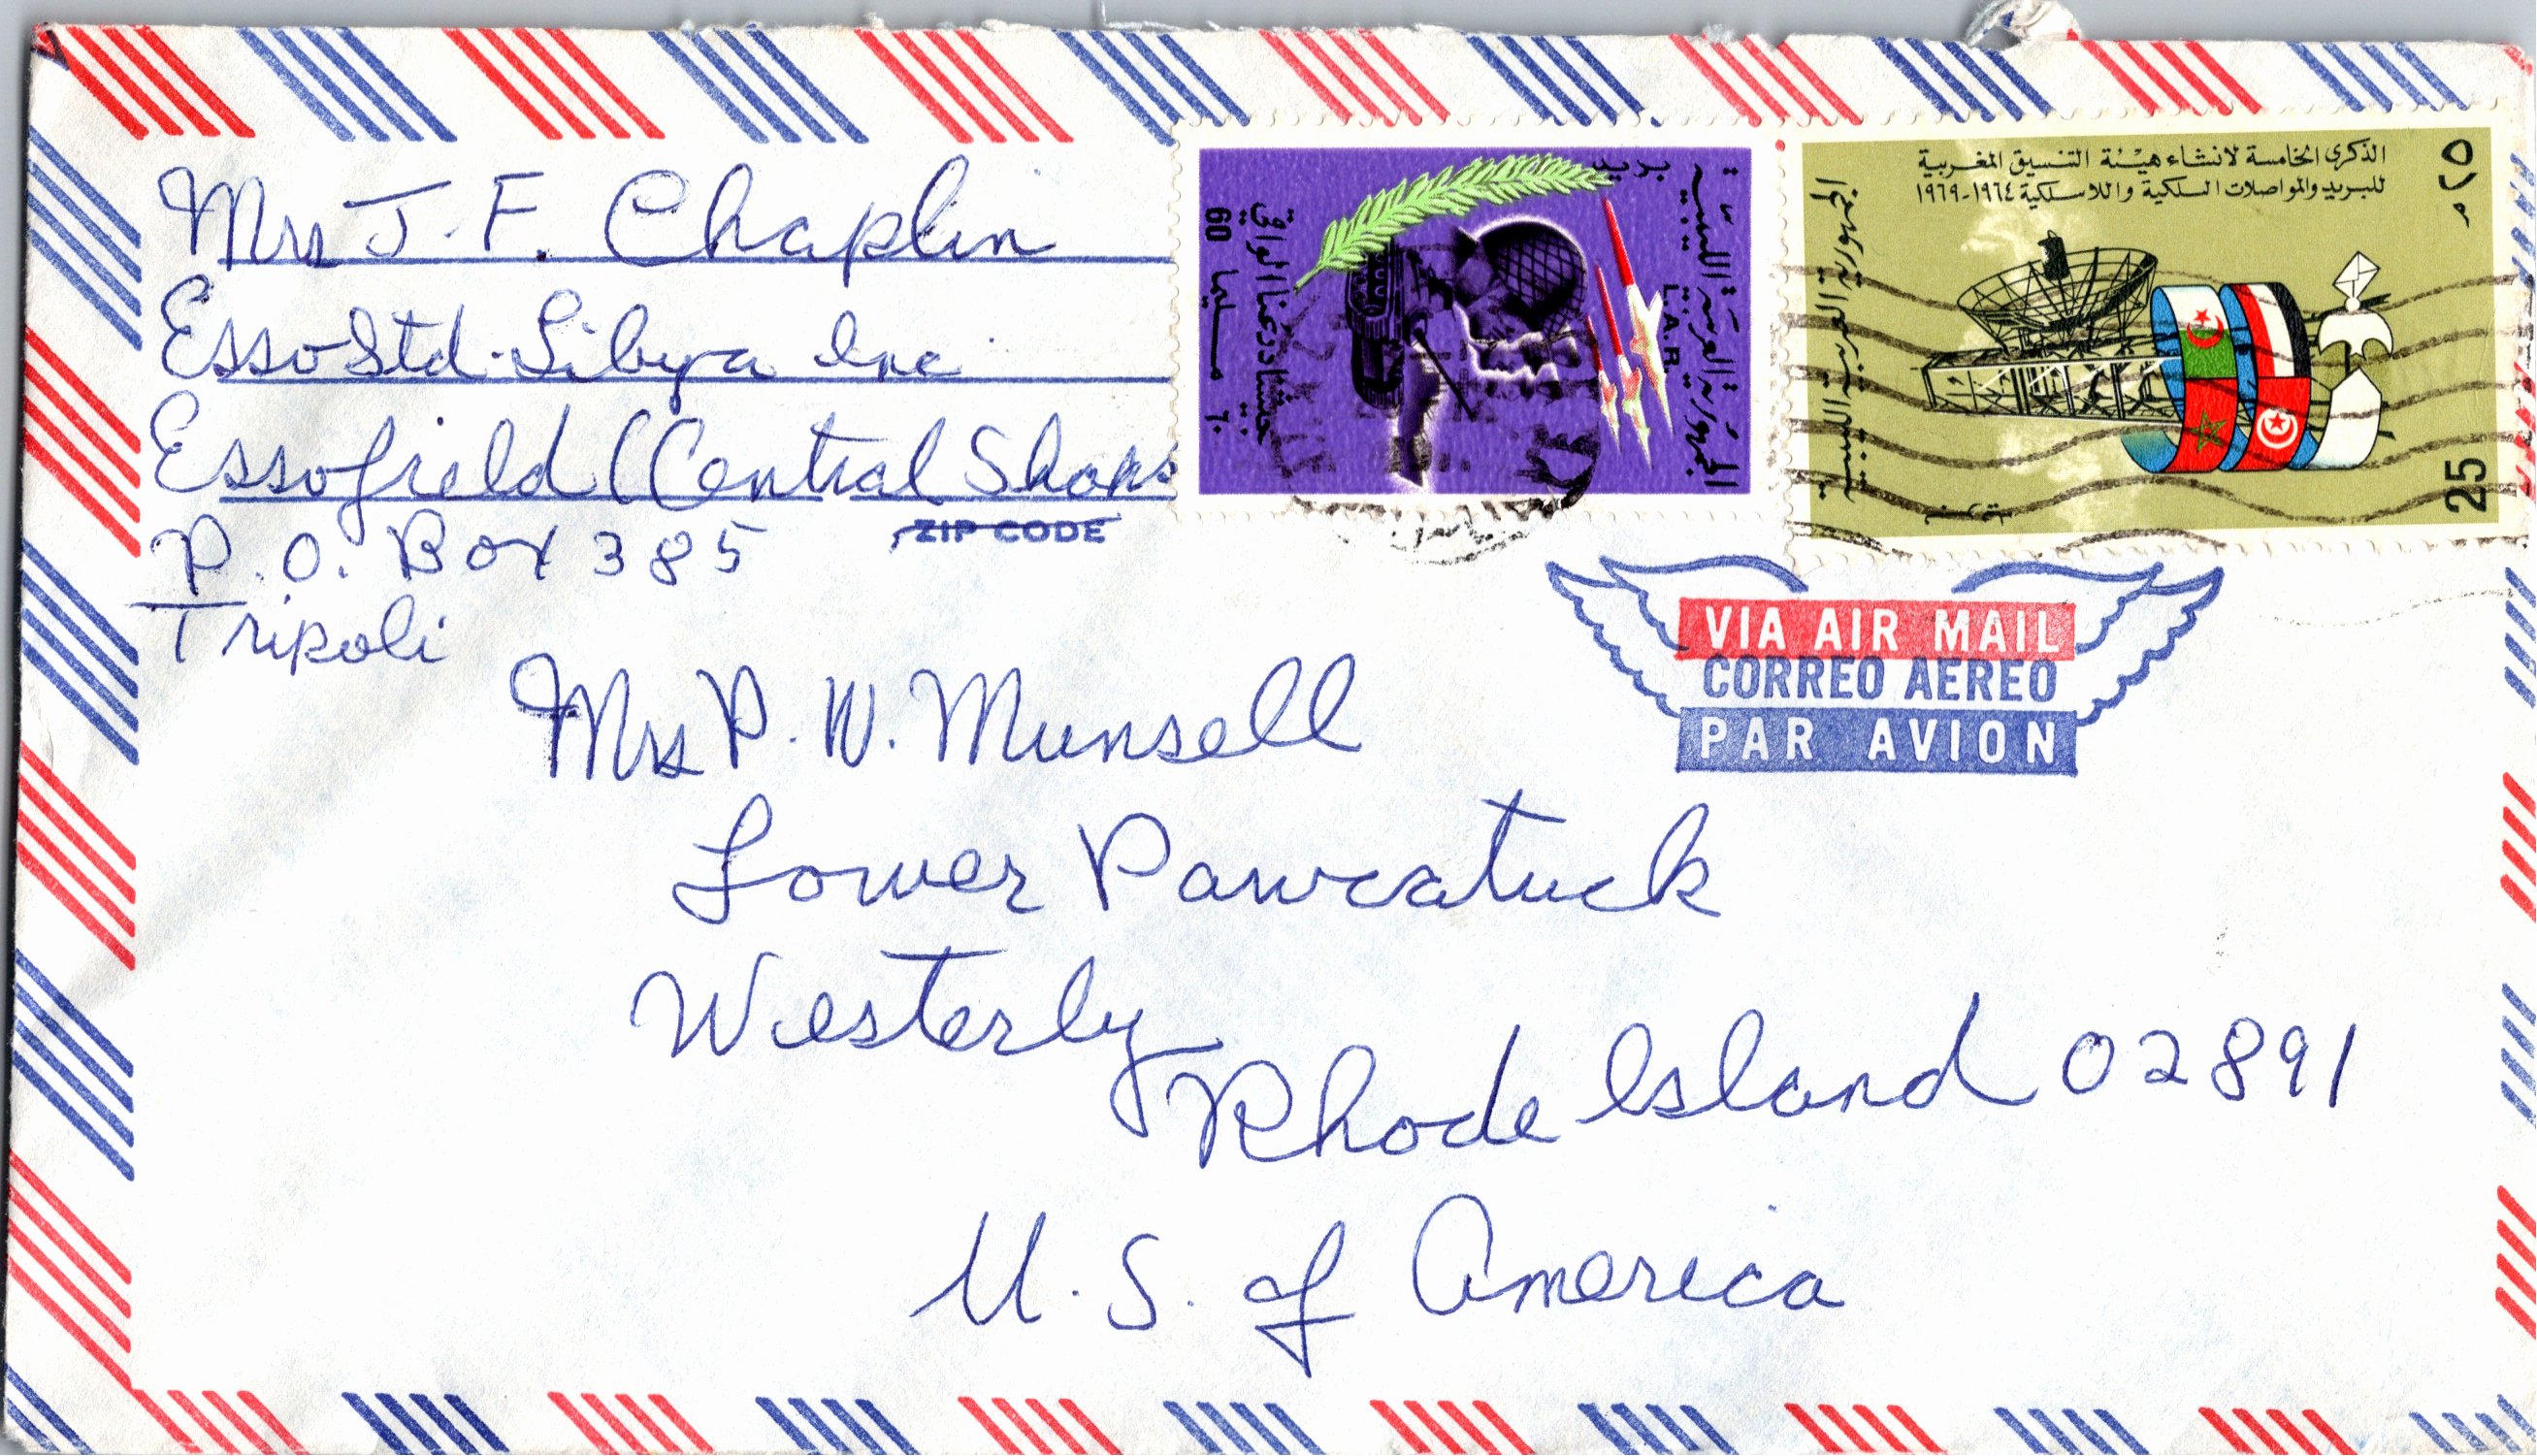 Mrs J. F. Chaplin
Esso Std. Libya Inc
Essofield (Central Shops
ZIP CODE
P.O. Box 385
Tripoli
بريد
الجمهورية العربية الليبية
L.A.R.
60
مليما ٦٠
الذكرى الخامسة لانشاء هيئة التنسيق المغربية
للبريد والمواصلات السلكية واللاسلكية ١٩٦٤-١٩٦٩
٢٥م
الجمهورية العربية الليبية
25
VIA AIR MAIL
CORREO AEREO
PAR AVION
Mrs P. W. Munsell
Lower Pawcatuck
Westerly
Rhode Island 02891
U. S. of America